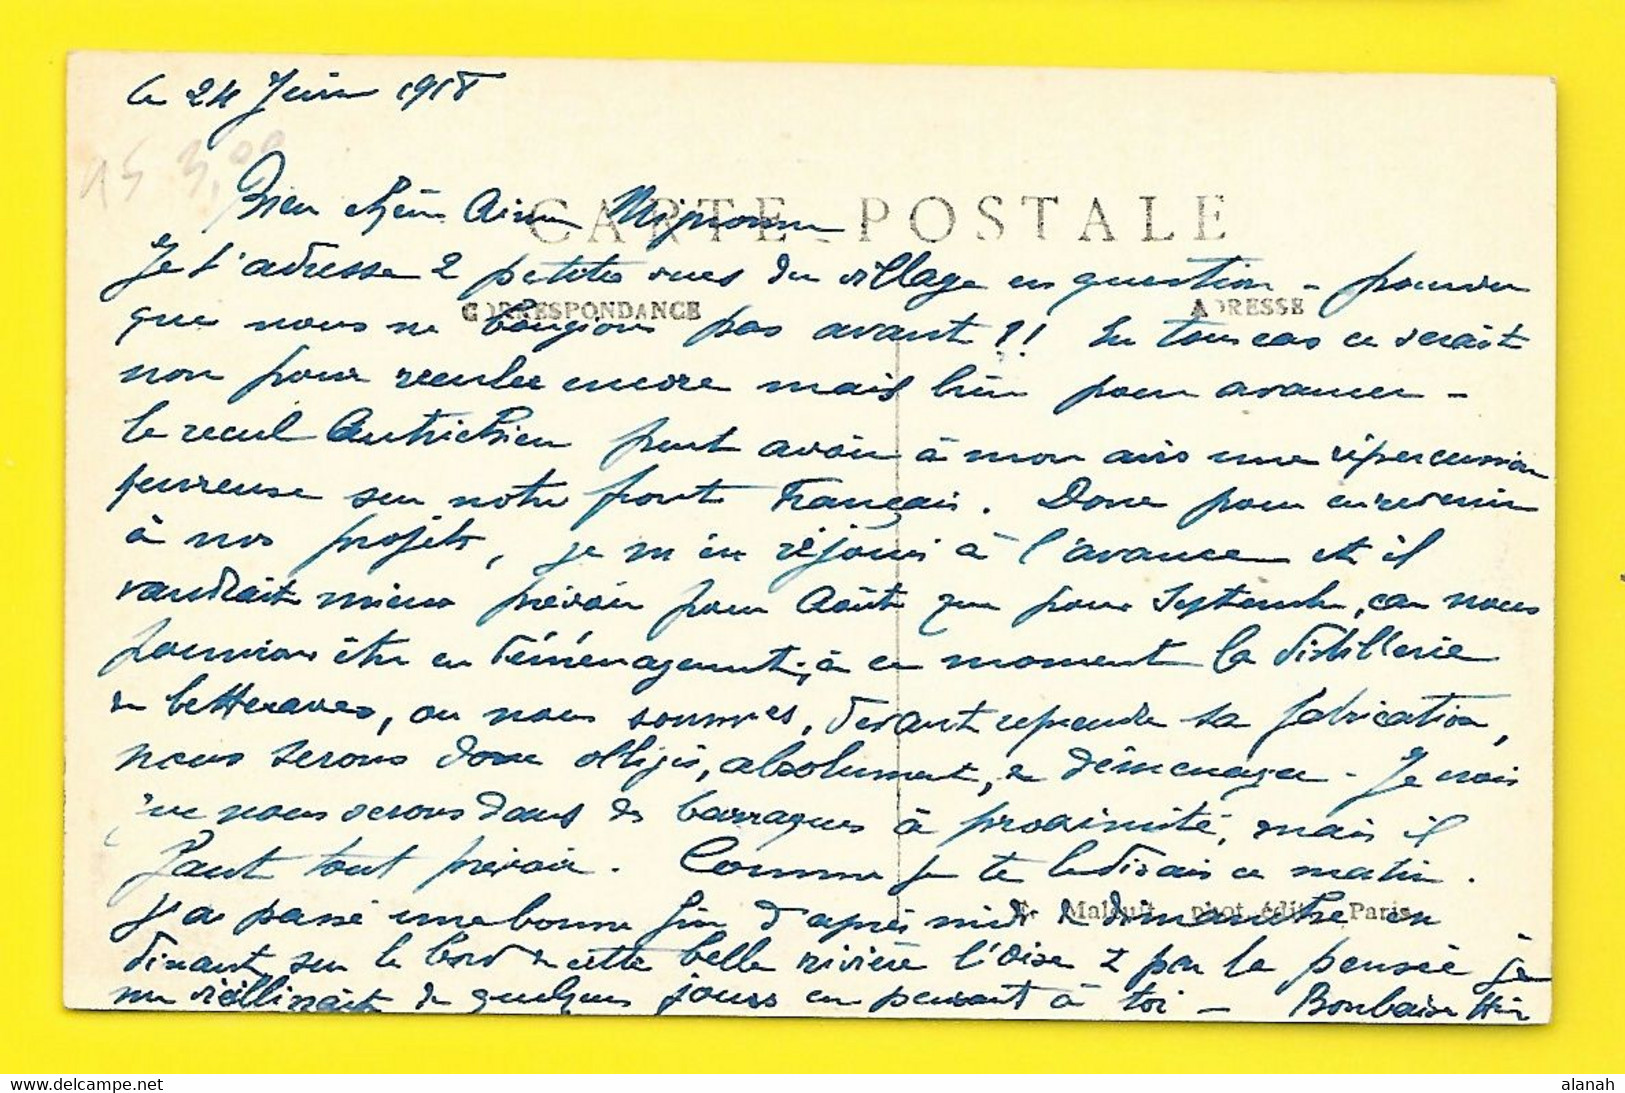 Le 24 Juin 1918
15 3,00
Bien chère Aimée Mignonne
CARTE POSTALE
Je t'adresse 2 petites vues du village en question - pourvu
CORRESPONDANCE
ADRESSE
que nous ne bougions pas avant ?! En tous cas ce serait
non pour reculer encore mais bien pour avancer -
le recul Autrichien peut avoir à mon avis une répercussion
heureuse sur notre front Français. Donc pour en revenir
à nos projets, je m'en réjouis à l'avance et il
vaudrait mieux prévoir pour Août que pour Septembre, car nous
pourrions être en déménagement; à ce moment la distillerie
de betteraves, ou nous sommes, devant reprendre sa fabrication,
nous serons donc obligés, absolument, de déménager - Je crois
que nous serons dans des barraques à proximité, mais il
faut tout prévoir. Comme je te le disais ce matin.
j'ai passé une bonne fin d'après midi de dimanche en
E. Malcuit, phot. édit. Paris
dinant sur le bord de cette belle rivière l'Oise & par la pensée je
me vieillissait de quelques jours en pensant à toi -